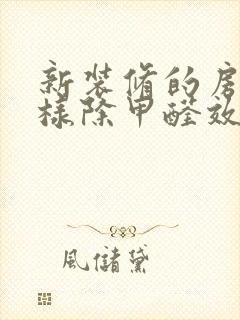 新装修的房
样除甲醛效
風儲黛